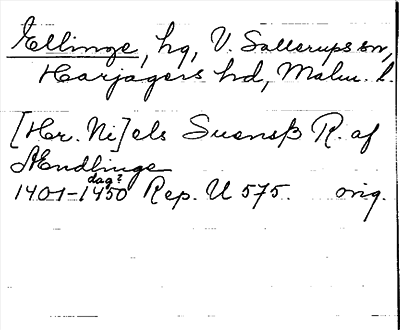 Ellinge, hg, V. Sallerups sn,
Harjagers hd, Malm. l.
[Hr. Ni]els Suensß R. af
Ændlinge
dag?
1401-1450 Rep. U 575. orig.